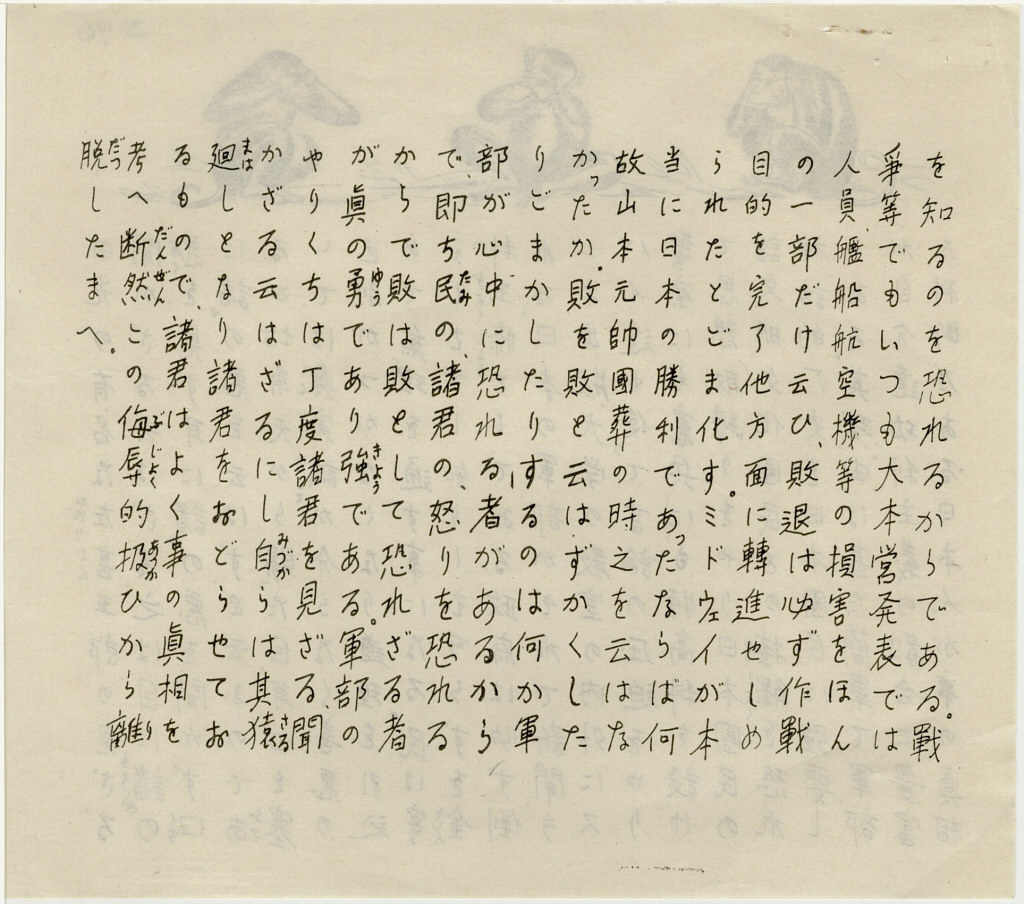 を知るのを恐れるからである。戦
爭等でもいつも大本営発表では
人員、艦船航空機等の損害をほん
の一部だけ云ひ、敗退は必ず作戦
目的を完了他方面に轉進せしめ
られたとごま化す。ミドウェイが本
当に日本の勝利であったならば何
故山本元帥國葬の時之を云はな
かったか。敗を敗と云はずかくした
りごまかしたりするのは何か軍
部が心中に恐れる者があるから
で、即ち民たみの、諸君の、怒りを恐れる
からで敗は敗として恐れざる者
が眞の勇ゆうであり強きようである。軍部の
やりくちは丁度諸君を見ざる、聞
かざる云はざるにし自みづからは其猿さる
廻まはしとなり諸君をおどらせてお
るもので、諸君はよく事の眞相を
考へ断然だんぜんこの侮辱ぶじよく的扱あつかひから離り
脱だつしたまへ。